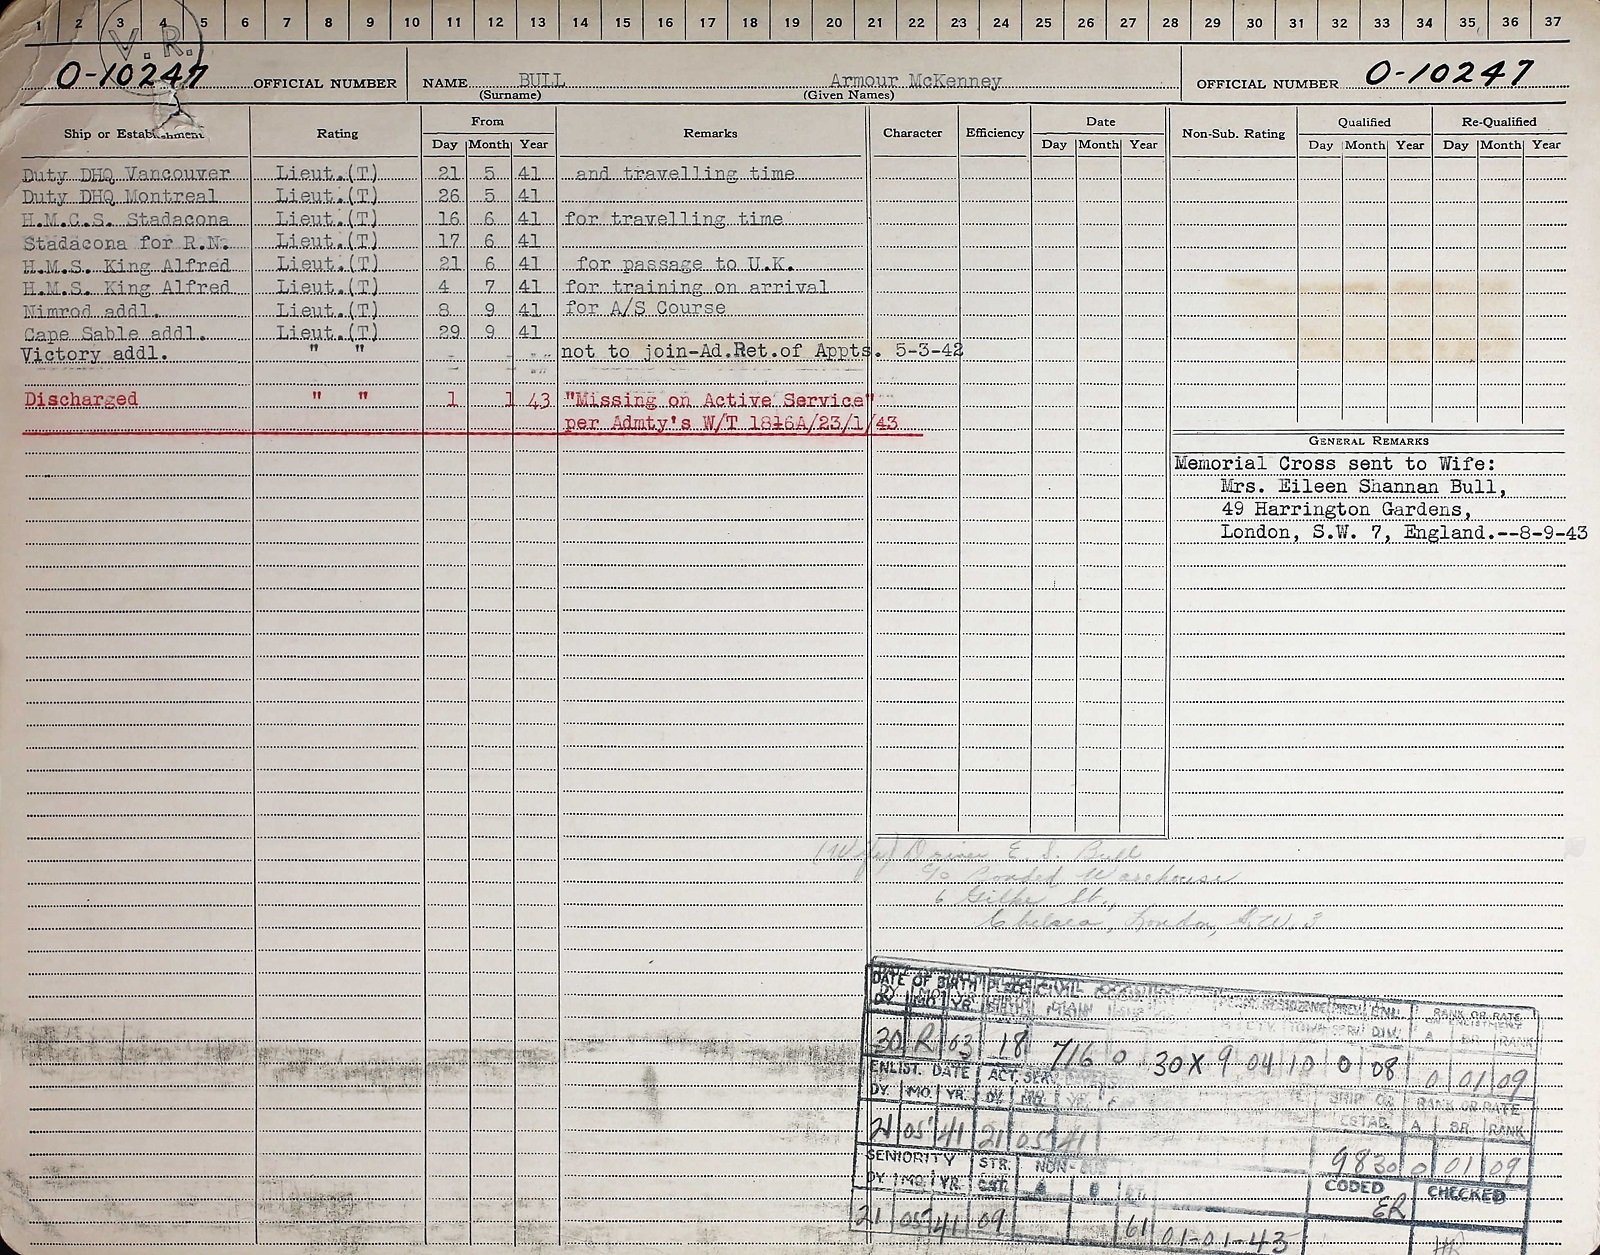 1 2 3 4 5 6 7 8 9 10 11 12 13 14 15 16 17 18 19 20 21 22 23 24 25 26 27 28 29 30 31 32 33 34 35 36 37
V.R.
O-10247 OFFICIAL NUMBER NAME BULL Armour McKenney OFFICIAL NUMBER O-10247
(Surname) (Given Names)
Ship or Establishment Rating From Remarks Character Efficiency Date Non-Sub. Rating Qualified Re-Qualified
Day Month Year Day Month Year Day Month Year Day Month Year
Duty DHQ Vancouver Lieut.(T) 21 5 41 and travelling time
Duty DHQ Montreal Lieut.(T) 26 5 41
H.M.C.S. Stadacona Lieut.(T) 16 6 41 for travelling time
Stadacona for R.N. Lieut.(T) 17 6 41
H.M.S. King Alfred Lieut.(T) 21 6 41 for passage to U.K.
H.M.S. King Alfred Lieut.(T) 4 7 41 for training on arrival
Nimrod addl. Lieut.(T) 8 9 41 for A/S Course
Cape Sable addl. Lieut.(T) 29 9 41
Victory addl. " " not to join-Ad.Ret.of Appts. 5-3-42
Discharged " " 1 1 43 "Missing on Active Service"
per Admty's W/T 1816A/23/1/43
GENERAL REMARKS
Memorial Cross sent to Wife:
Mrs. Eileen Shannan Bull,
49 Harrington Gardens,
London, S.W. 7, England.--8-9-43
(Wife) Driver E. S. Bull
c/o Bonded Warehouse
6 St.,
Chelsea, London, S.W. 3
DATE OF BIRTH PLACE CIVIL RANK OR RATE
DY. MO. YR. BIRTH MAIN DIV. A BR. RANK
30 R 03 18 716 0 30 X 9 04 10 0 08 0 01 09
ENLIST. DATE ACT. SERV. SHIP OR RANK OR RATE
DY. MO. YR. DY. MO. YR. ESTAB. A BR. RANK
21 05 41 21 05 41 9830 0 01 09
SENIORITY STR. NON-SUB CODED CHECKED
DY. MO. YR. CAT. ER
21 05 41 09 61 01-01-43